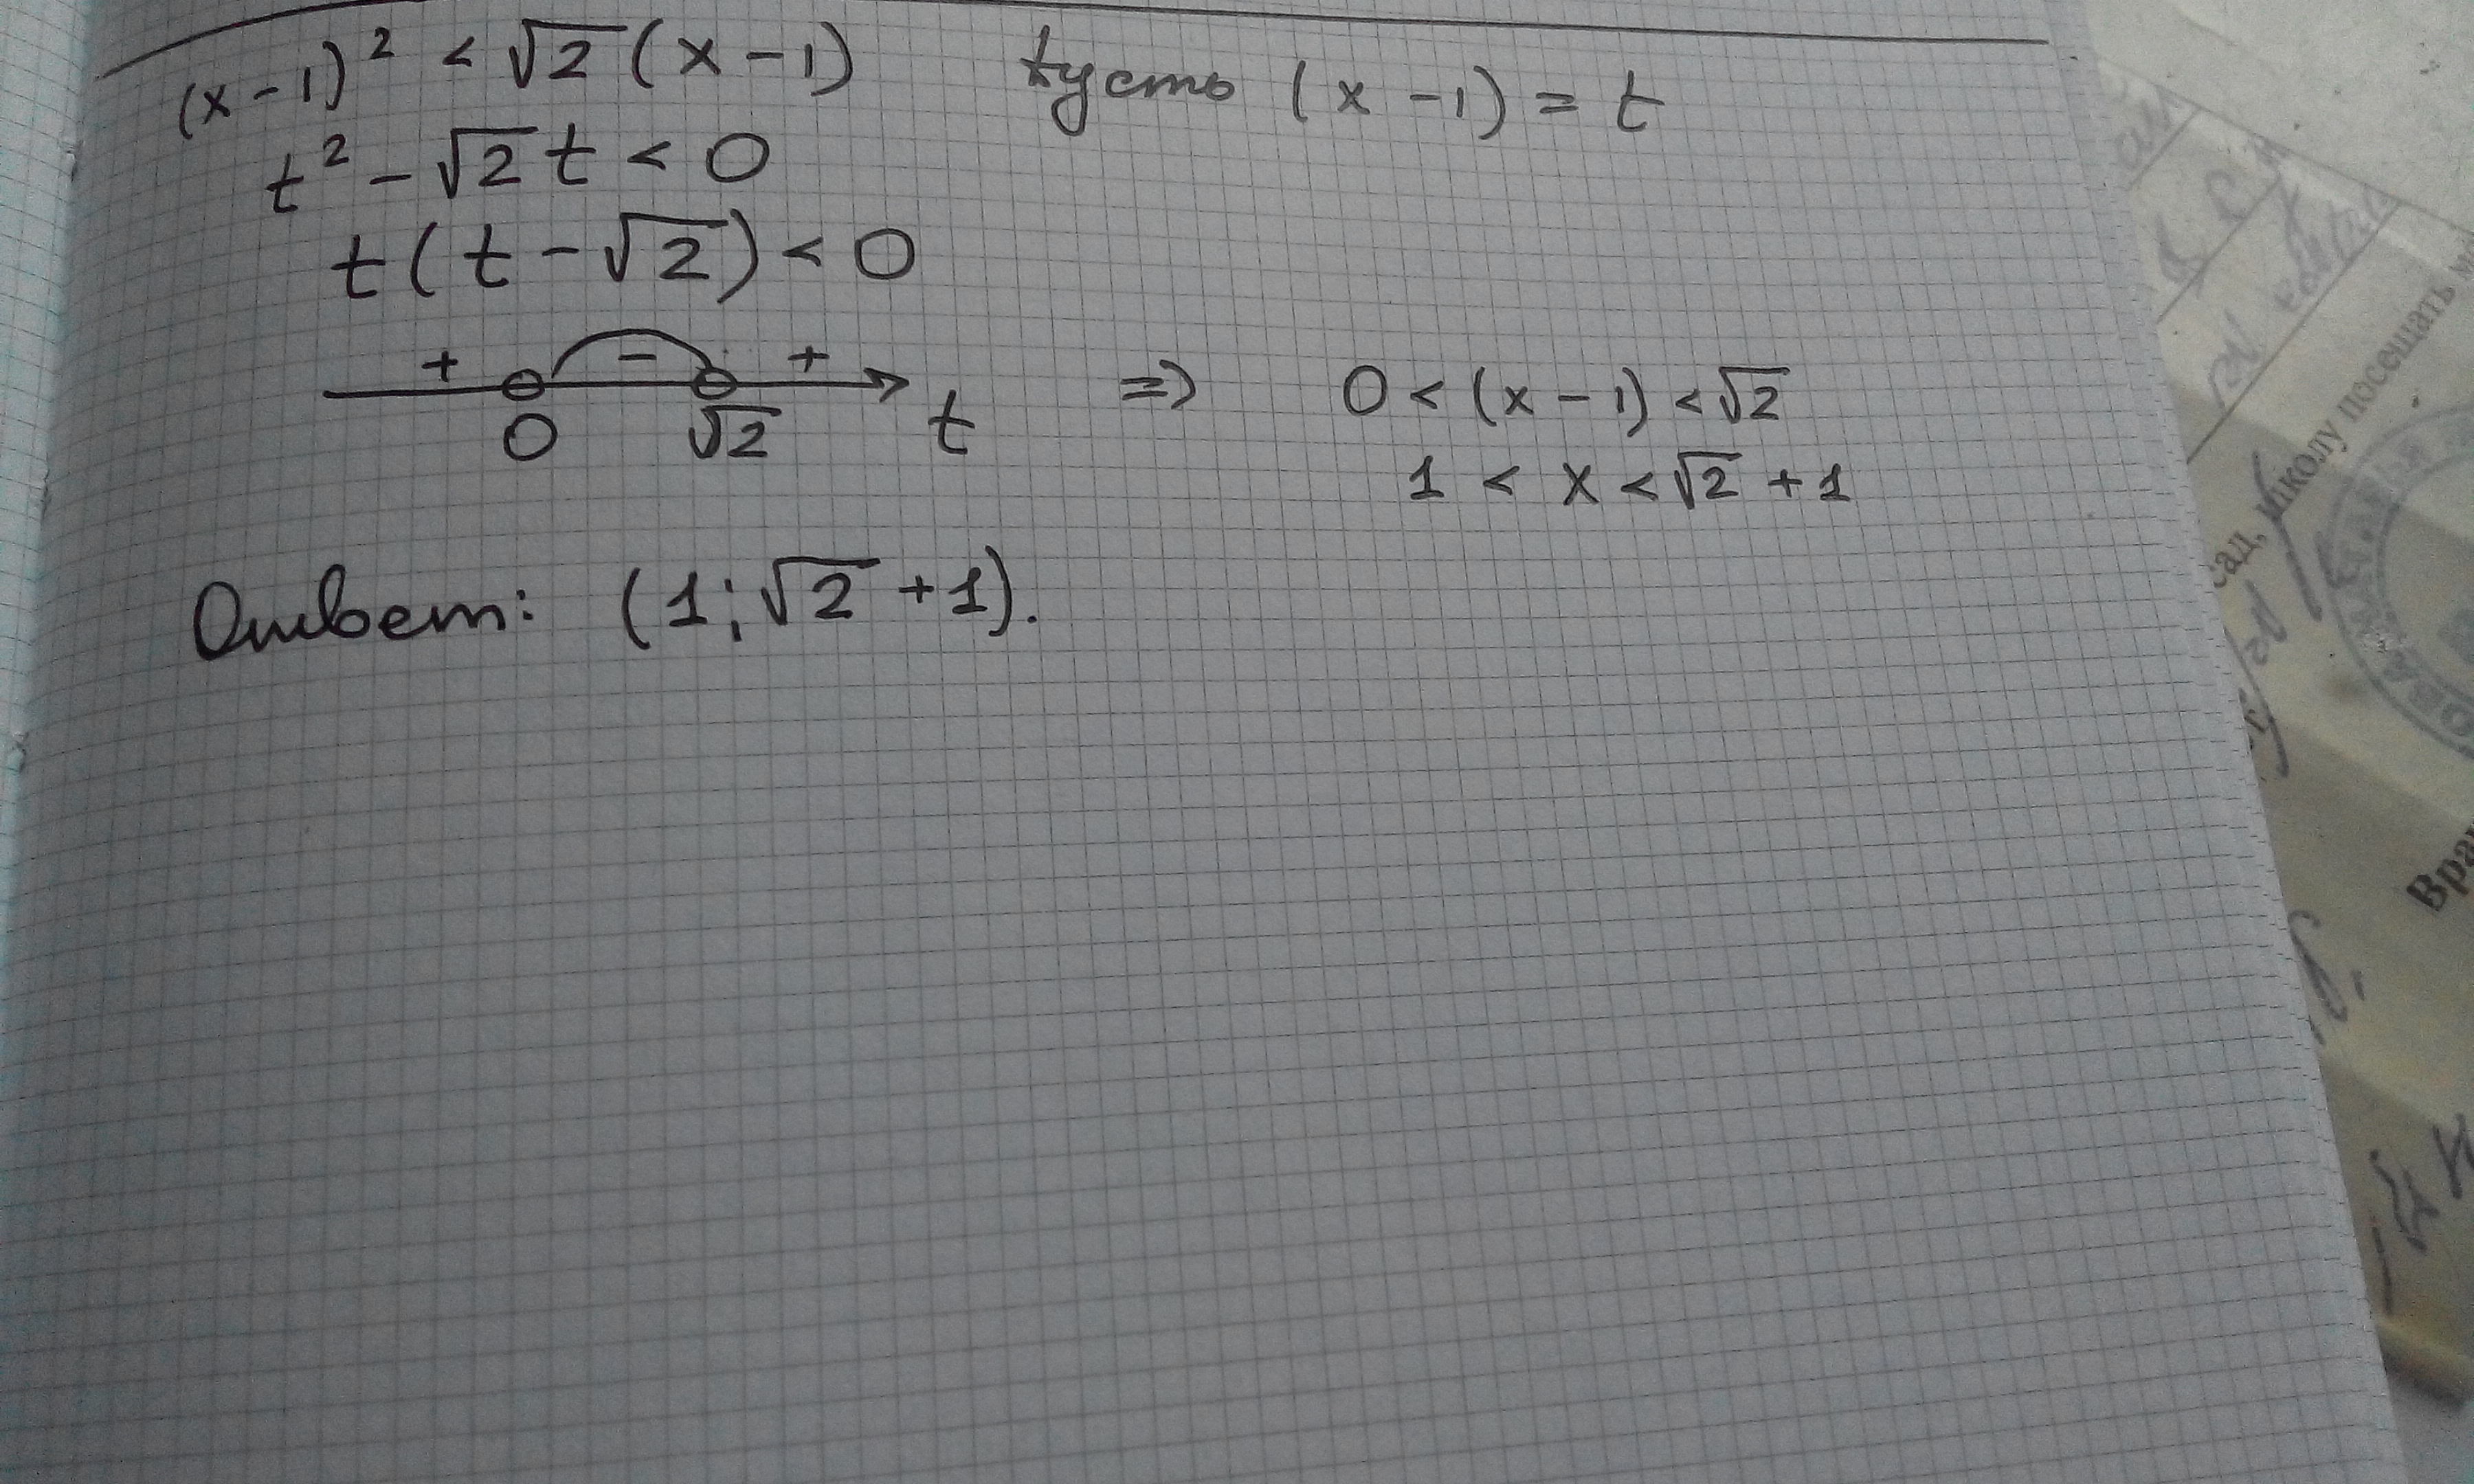 (x-1)² < √2(x-1) пусть (x-1) = t
t² - √2t < 0
t(t-√2) < 0
+ - +
0 √2 t
=> 0 < (x-1) < √2
1 < x < √2 + 1
Ответ: (1; √2 + 1).
школу посещать
Вра